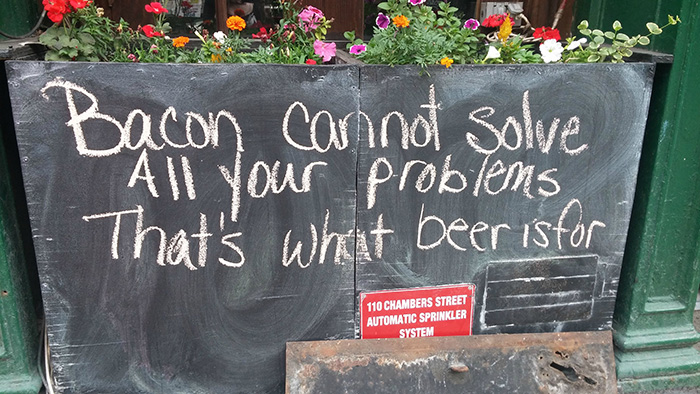 Bacon cannot solve
All your problems
That's what beer is for
110 CHAMBERS STREET
AUTOMATIC SPRINKLER
SYSTEM